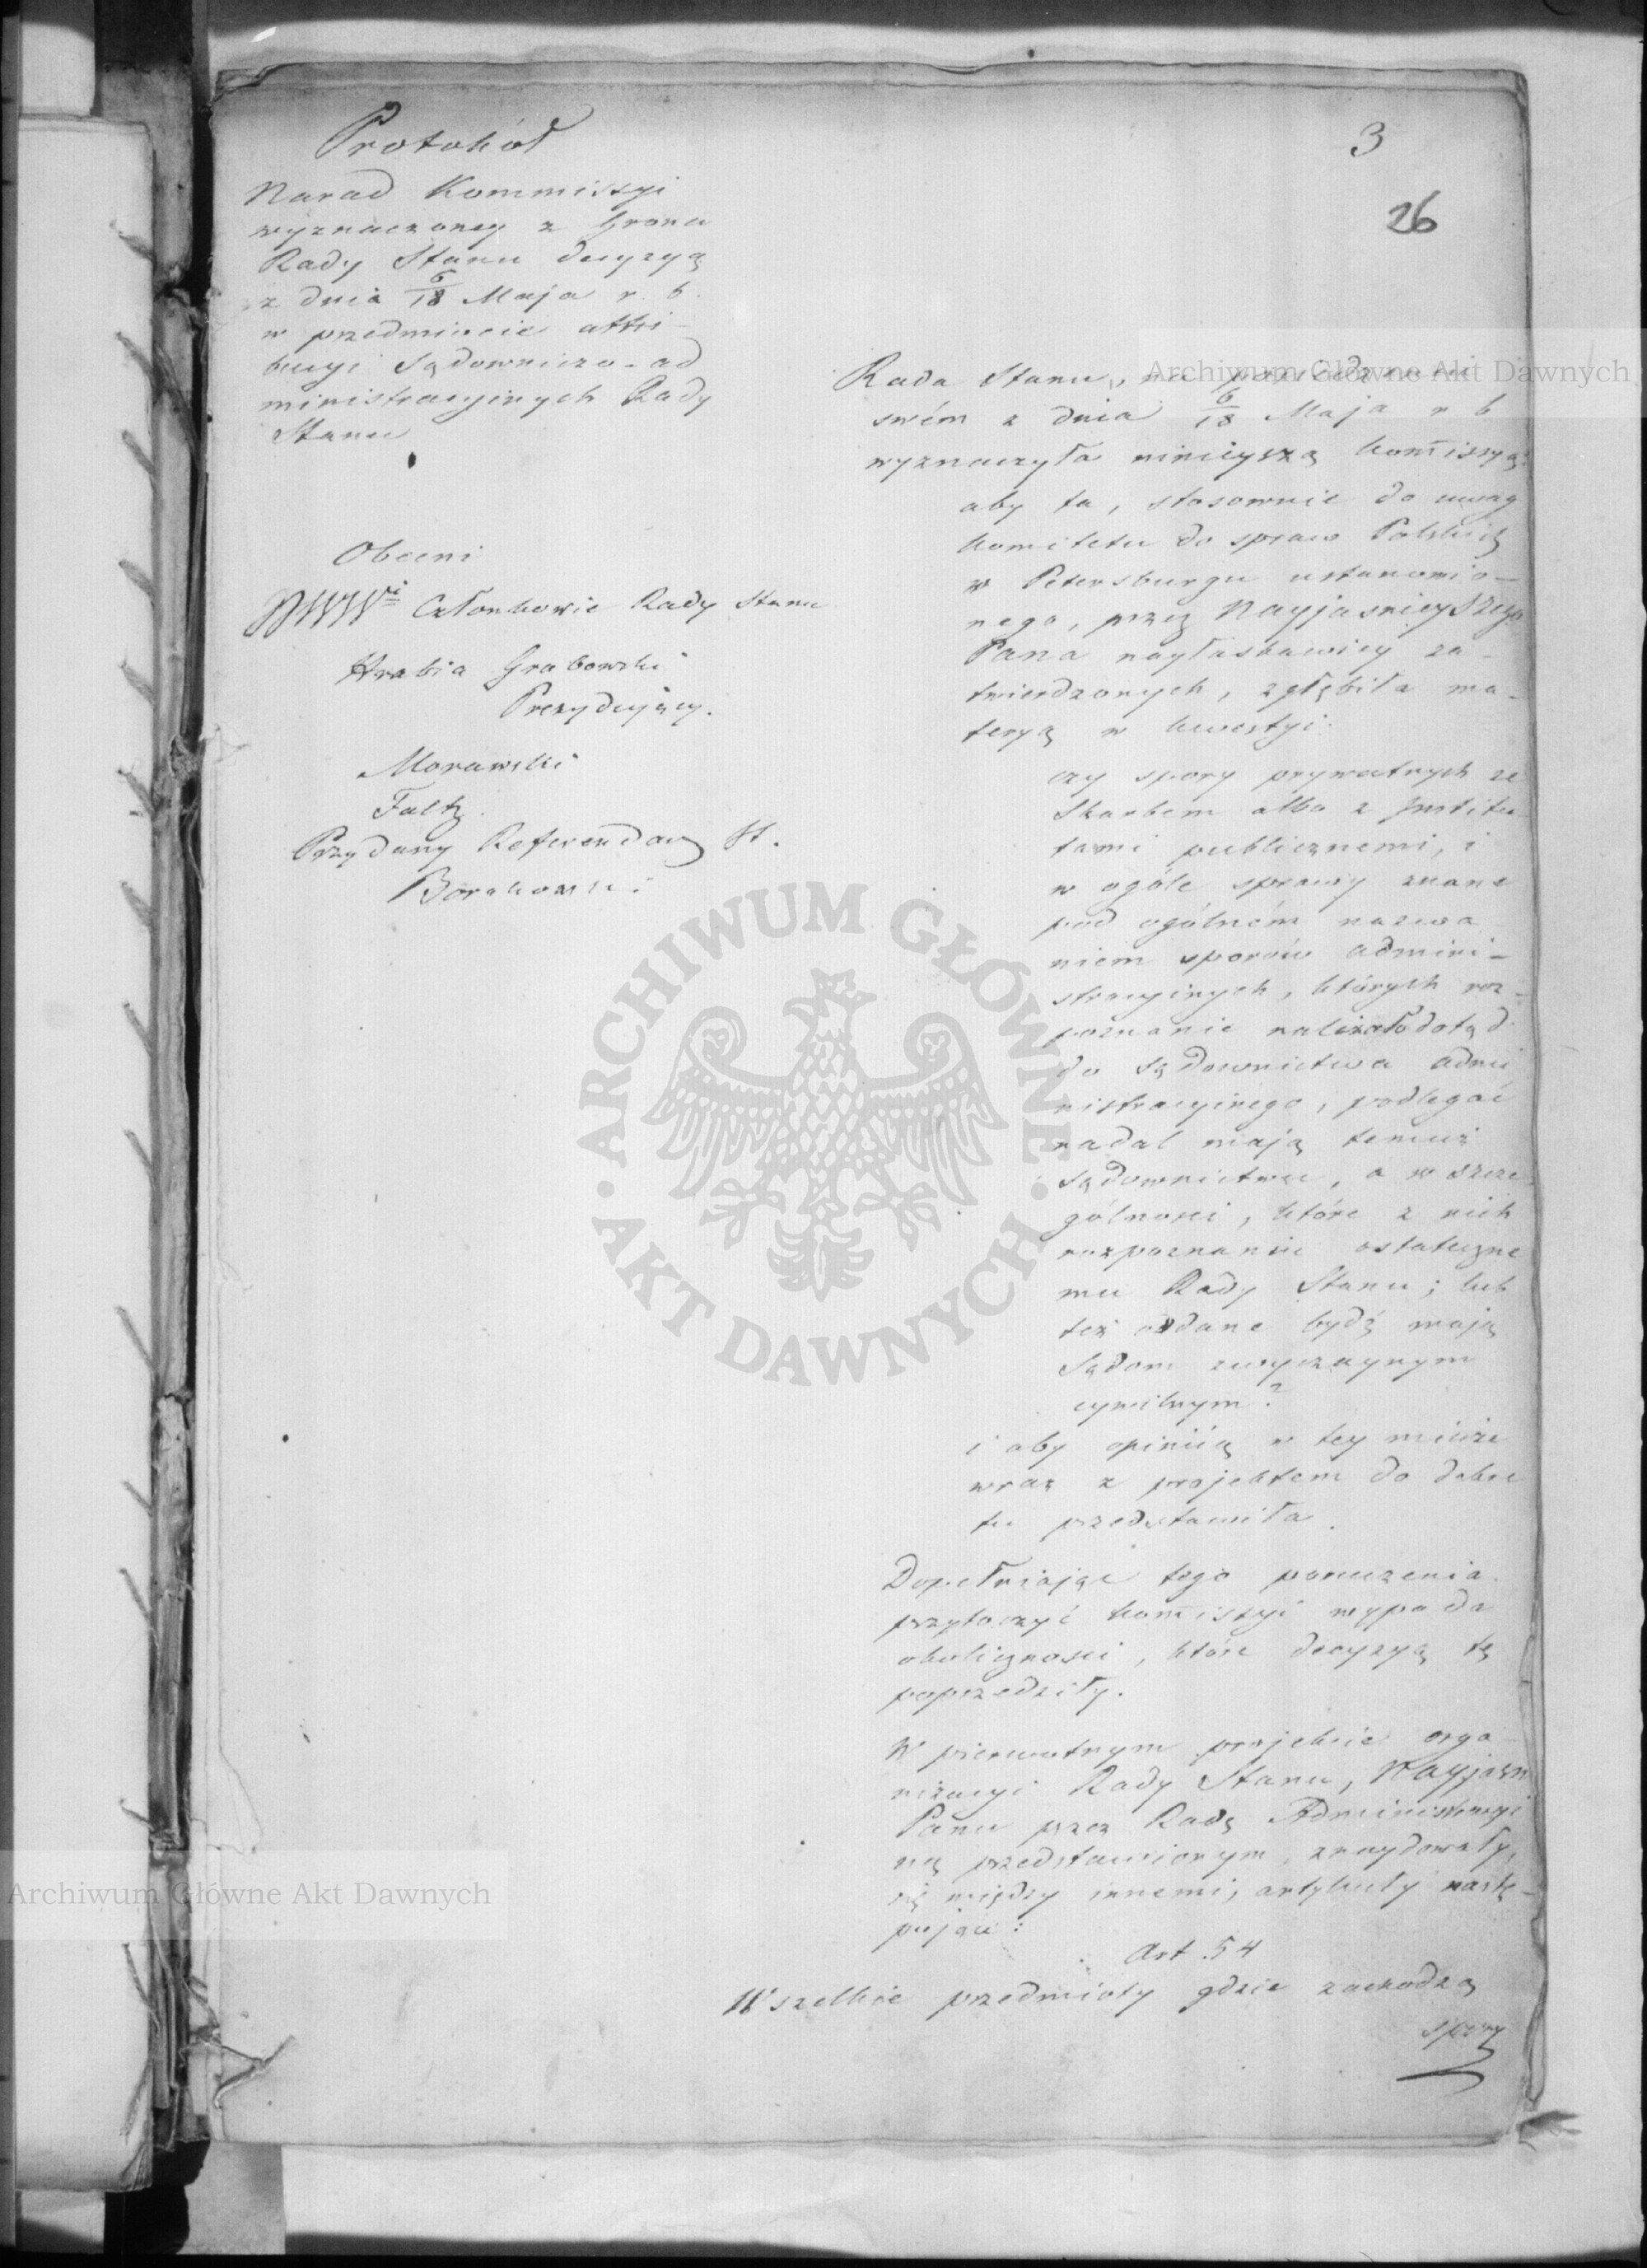 Protokół
Narad Kommissyi
wyznaczoney z Grona
Rady Stanu decyzyą
z dnia 6/18 Maja r. b.
w przedmiocie attri-
bucyi Sądowniczo-ad
ministracyinych Rady
Stanu
Obecni
JWWni Członkowie Rady Stanu
Hrabia Grabowski
Prezydujący.
Morawski
Faltz.
Przydany Referendarz St.
3
26
Rada Stanu, na posiedzeniu
swém z dnia 6/18 Maja r b
wyznaczyła ninieyszą komissyą:
aby ta, stosownie do uwag
komitetu do spraw Polskich
w Petersburgu ustanowio-
nego, przez Nayjasnieyszego
Pana nayłaskawiey za-
twierdzonych, zgłębiła ma-
teryą w kwestyi:
czy spory prywatnych ze
Skarbem albo z Institu
tami publicznemi, i
w ogóle sprawy znane
pod ogólném nazwa
niem sporów admini-
stracyinych, których roz-
poznanie należało dotąd
do Sądownictwa admi
nistracyinego, podlegać
nadal mają temuż
sądownictwu, a w szcze
gólnosci, które z nich
rozpoznaniu ostateczne
mu Rady Stanu; lub
też oddane bydź mają
Sądom zwyczaynym
cywilnym?
i aby opiniią w tey mierze
wraz z projektem do dekre
tu przedstawiła.
Dopełniając tego poruczenia
przytoczyć komissyi wypada
okolicznosci, które decyzyą tę
poprzedziły.
W pierwotnym projekcie orga-
nizacyi Rady Stanu, Nayjasn
Panu przez Radę Administracyi
ną przedstawionym, znaydowały
się między innemi, artykuły nastę-
pujące:
Art. 54
Wszelkie przedmioty gdzie zachodzą
spory
Archiwum Główne Akt Dawnych
ARCHIWUM GŁÓWNE · AKT DAWNYCH ·
Archiwum Główne Akt Dawnych